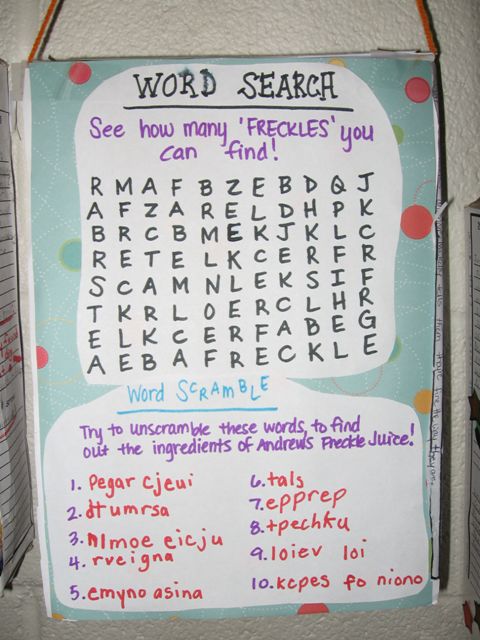 WORD SEARCH
See how many 'FRECKLES' you
can find!
R M A F B Z E B D Q J
A F Z A R E L D H P K
B R C B M E K J K L C
R E T E L K C E R F R
S C A M N L E K S I F
T K R L O E R C L H R
E L K C E R F A B E G
A E B A F R E C K L E
Word SCRAMBLE
Try to unscramble these words, to find
out the ingredients of Andrews Freckle Juice!
1. pegar cjeui
2. dtumrsa
3. nlmoe eicju
4. rveigna
5. emyno asina
6. tals
7. epprep
8. tpechku
9. loiev loi
10. kcpes fo niono